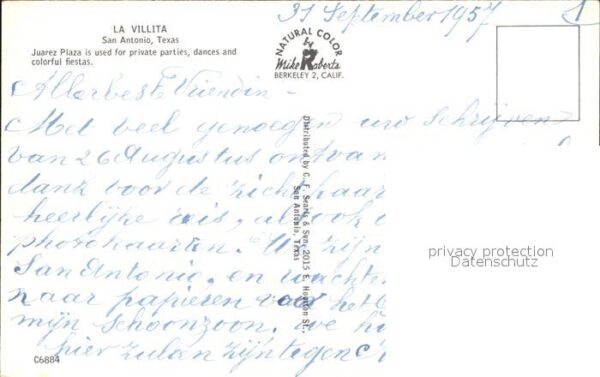 LA VILLITA
San Antonio, Texas
Juarez Plaza is used for private parties, dances and
colorful fiestas.
NATURAL COLOR
by
Mike Roberts
BERKELEY 2, CALIF.
31 September 1957
1
Allerbeste Vriendin -
Met veel genoegen uw schrijven
van 26 Augustus ontvan
dank voor de zichtkaar
heerlijke reis, alsook
photokaarten. W zijn
San Antonio, en wachten
naar papieren voor het
mijn schoonzoon. we ho
hier zullen zijn tegen
Distributed by C. F. Searls & Sun, 2015 E. Houston St.,
San Antonio, Texas
privacy protection
Datenschutz
C6884